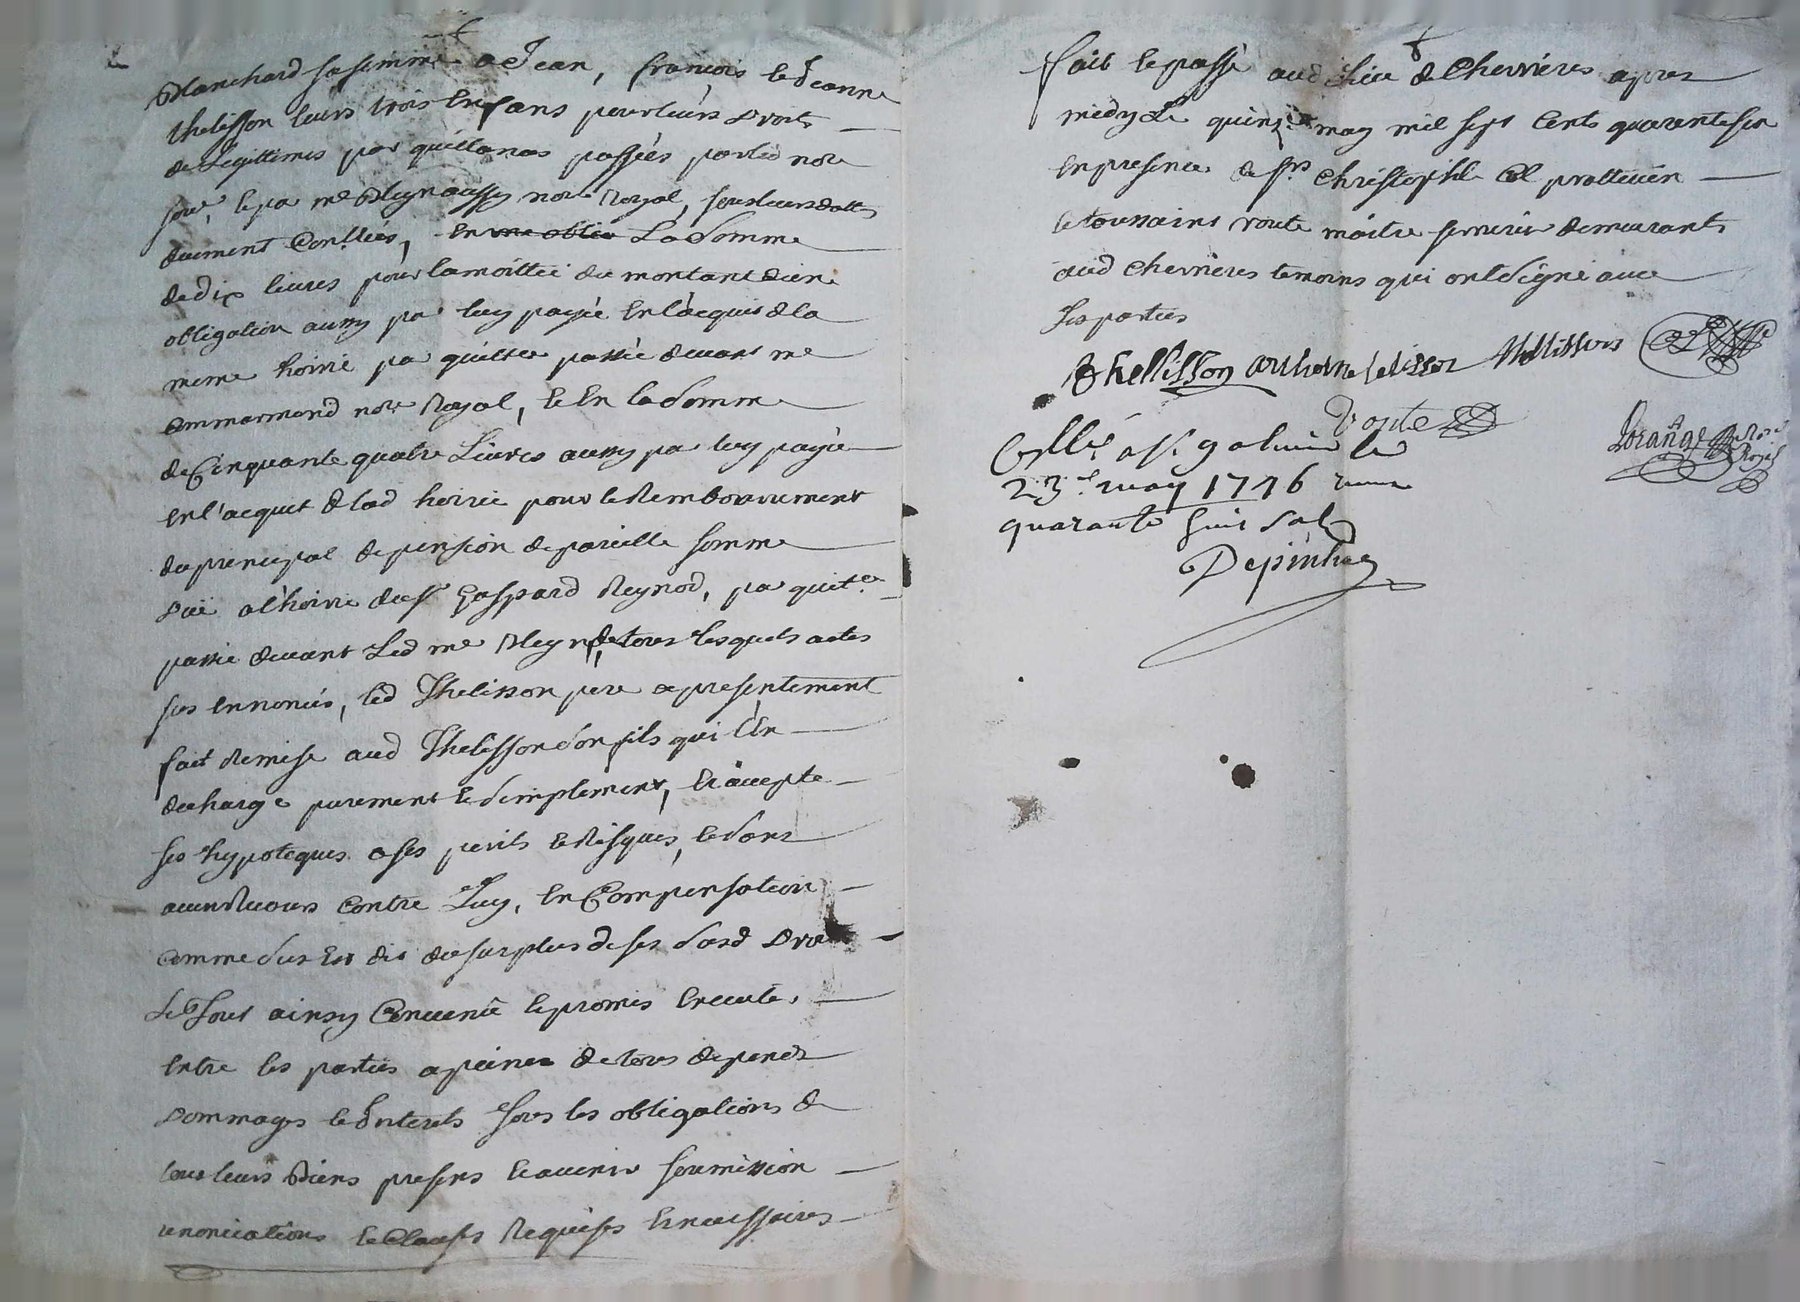 Blanchard sa femme a Jean, françois et Jeanne
thelisson leurs trois enfans pour leurs droits
de Legittimes par quittances passées par led not
par me Reynaussy notre Royal, sous leurs dattes
duement Conllées, en une oblica La Somme
de dix livres pour la moittié du montant d'une
obligation aussy par luy payée En l'acquit de la
meme hoirie par quitter passée devant me
ammarmand notre Royal, et En la Somme
de Cinquante quatre Livres aussy par luy payée
en l'acquit de lad hoirie pour le Remboursement
du principal de pension de pareille somme
due a l'hoirie du sr Gaspard Reynod, par quitce
passée devant Led me Reynod de tous lesquels actes
sus ennoncés, led Thelisson pere a presentement
fait Remise aud Thelisson son fils qui L'en
decharge purement et Simplement, et accepte
ses hypoteques a ses perils et Risques, et sans
aucun Recours contre Luy, en Compensation
Comme sus Est dit du surplus de ses susd
Le Tout ainsy Convenu et promis
Entre les parties a peine de tous depends
dommages et Interets sous les obligations de
tous leurs Biens presens et avenir soumission
renonciations et Clauses Requises et necessaires
fait et passé aud Lieu de Chevrières apres
midy Le quinze may mil sept Cents quarante six
En presence de srs Christophle
et toussaint voute maitre serrurier demeurants
aud Chevrières temoins qui ont signé avec
Les parties
thellisson anthoine telisson thellisson
Voute
Lorange Notre Royal
Collé a St galmier le
23e may 1746
quarante huit sols
Depinhac